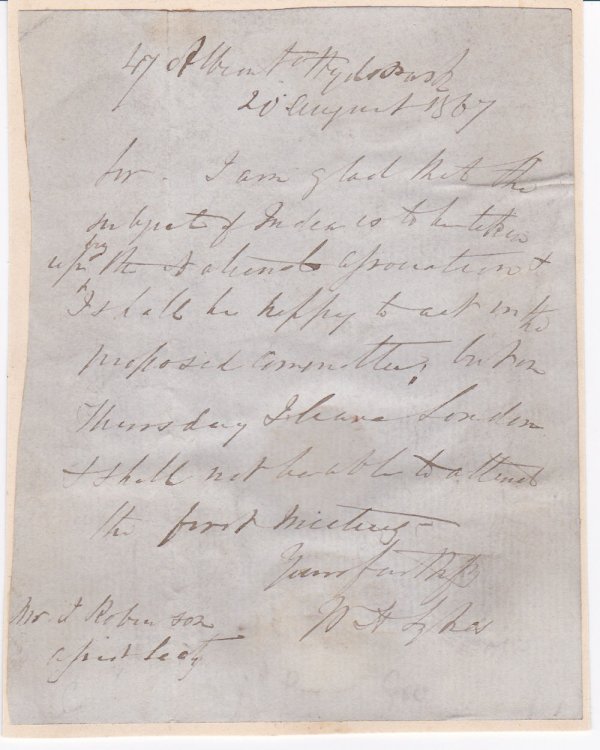 47 Albion St Hydepark
20 August 1867
Sir. I am glad that the
subject of India is to be taken
up by the National Association &
I shall be happy to act in the
proposed Committee, but on
Thursday I leave London
& shall not be able to attend
the first Meeting —
Yours faithfly
W H Sykes
Mr J Robinson